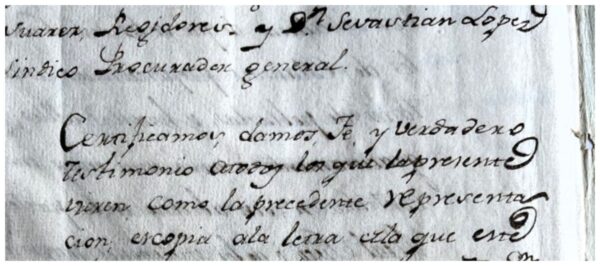 Suarez, Regidores, y Dn Sevastian Lopez
Sindico Procurador general.
Certificamos, damos, Fe, y verdadero
Testimonio atodos los que la presente
vieren como la precedente representa
cion, es copia ala letra dela que este